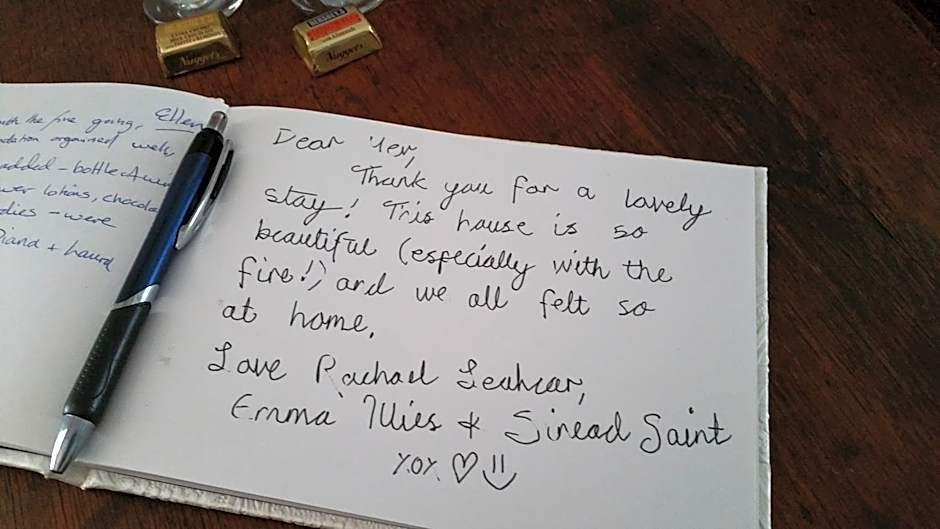 HERSHEY'S
Nuggets
Nuggets
with the fire going, Ellen
organised well
added - bottle
lotions, chocola
- were
Diana + Laura
Dear
Thank you for a lovely
stay! This house is so
beautiful (especially with the
fire!) and we all felt so
at home.
Love Rachael Leahcar,
Emma & Sinead Saint
xox ♡